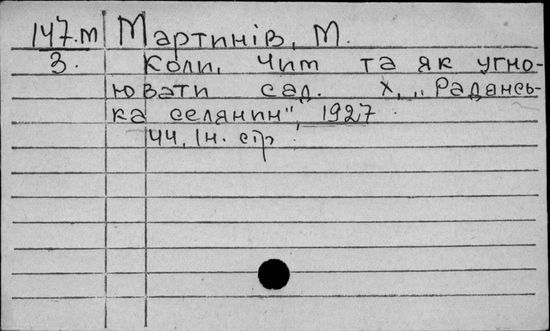 147.м Мартинів, М.
3. Коли, чим та як угно-
ювати сад. Х, „Радянсь-
ка селянин", 1927.
44, 1н. стр.